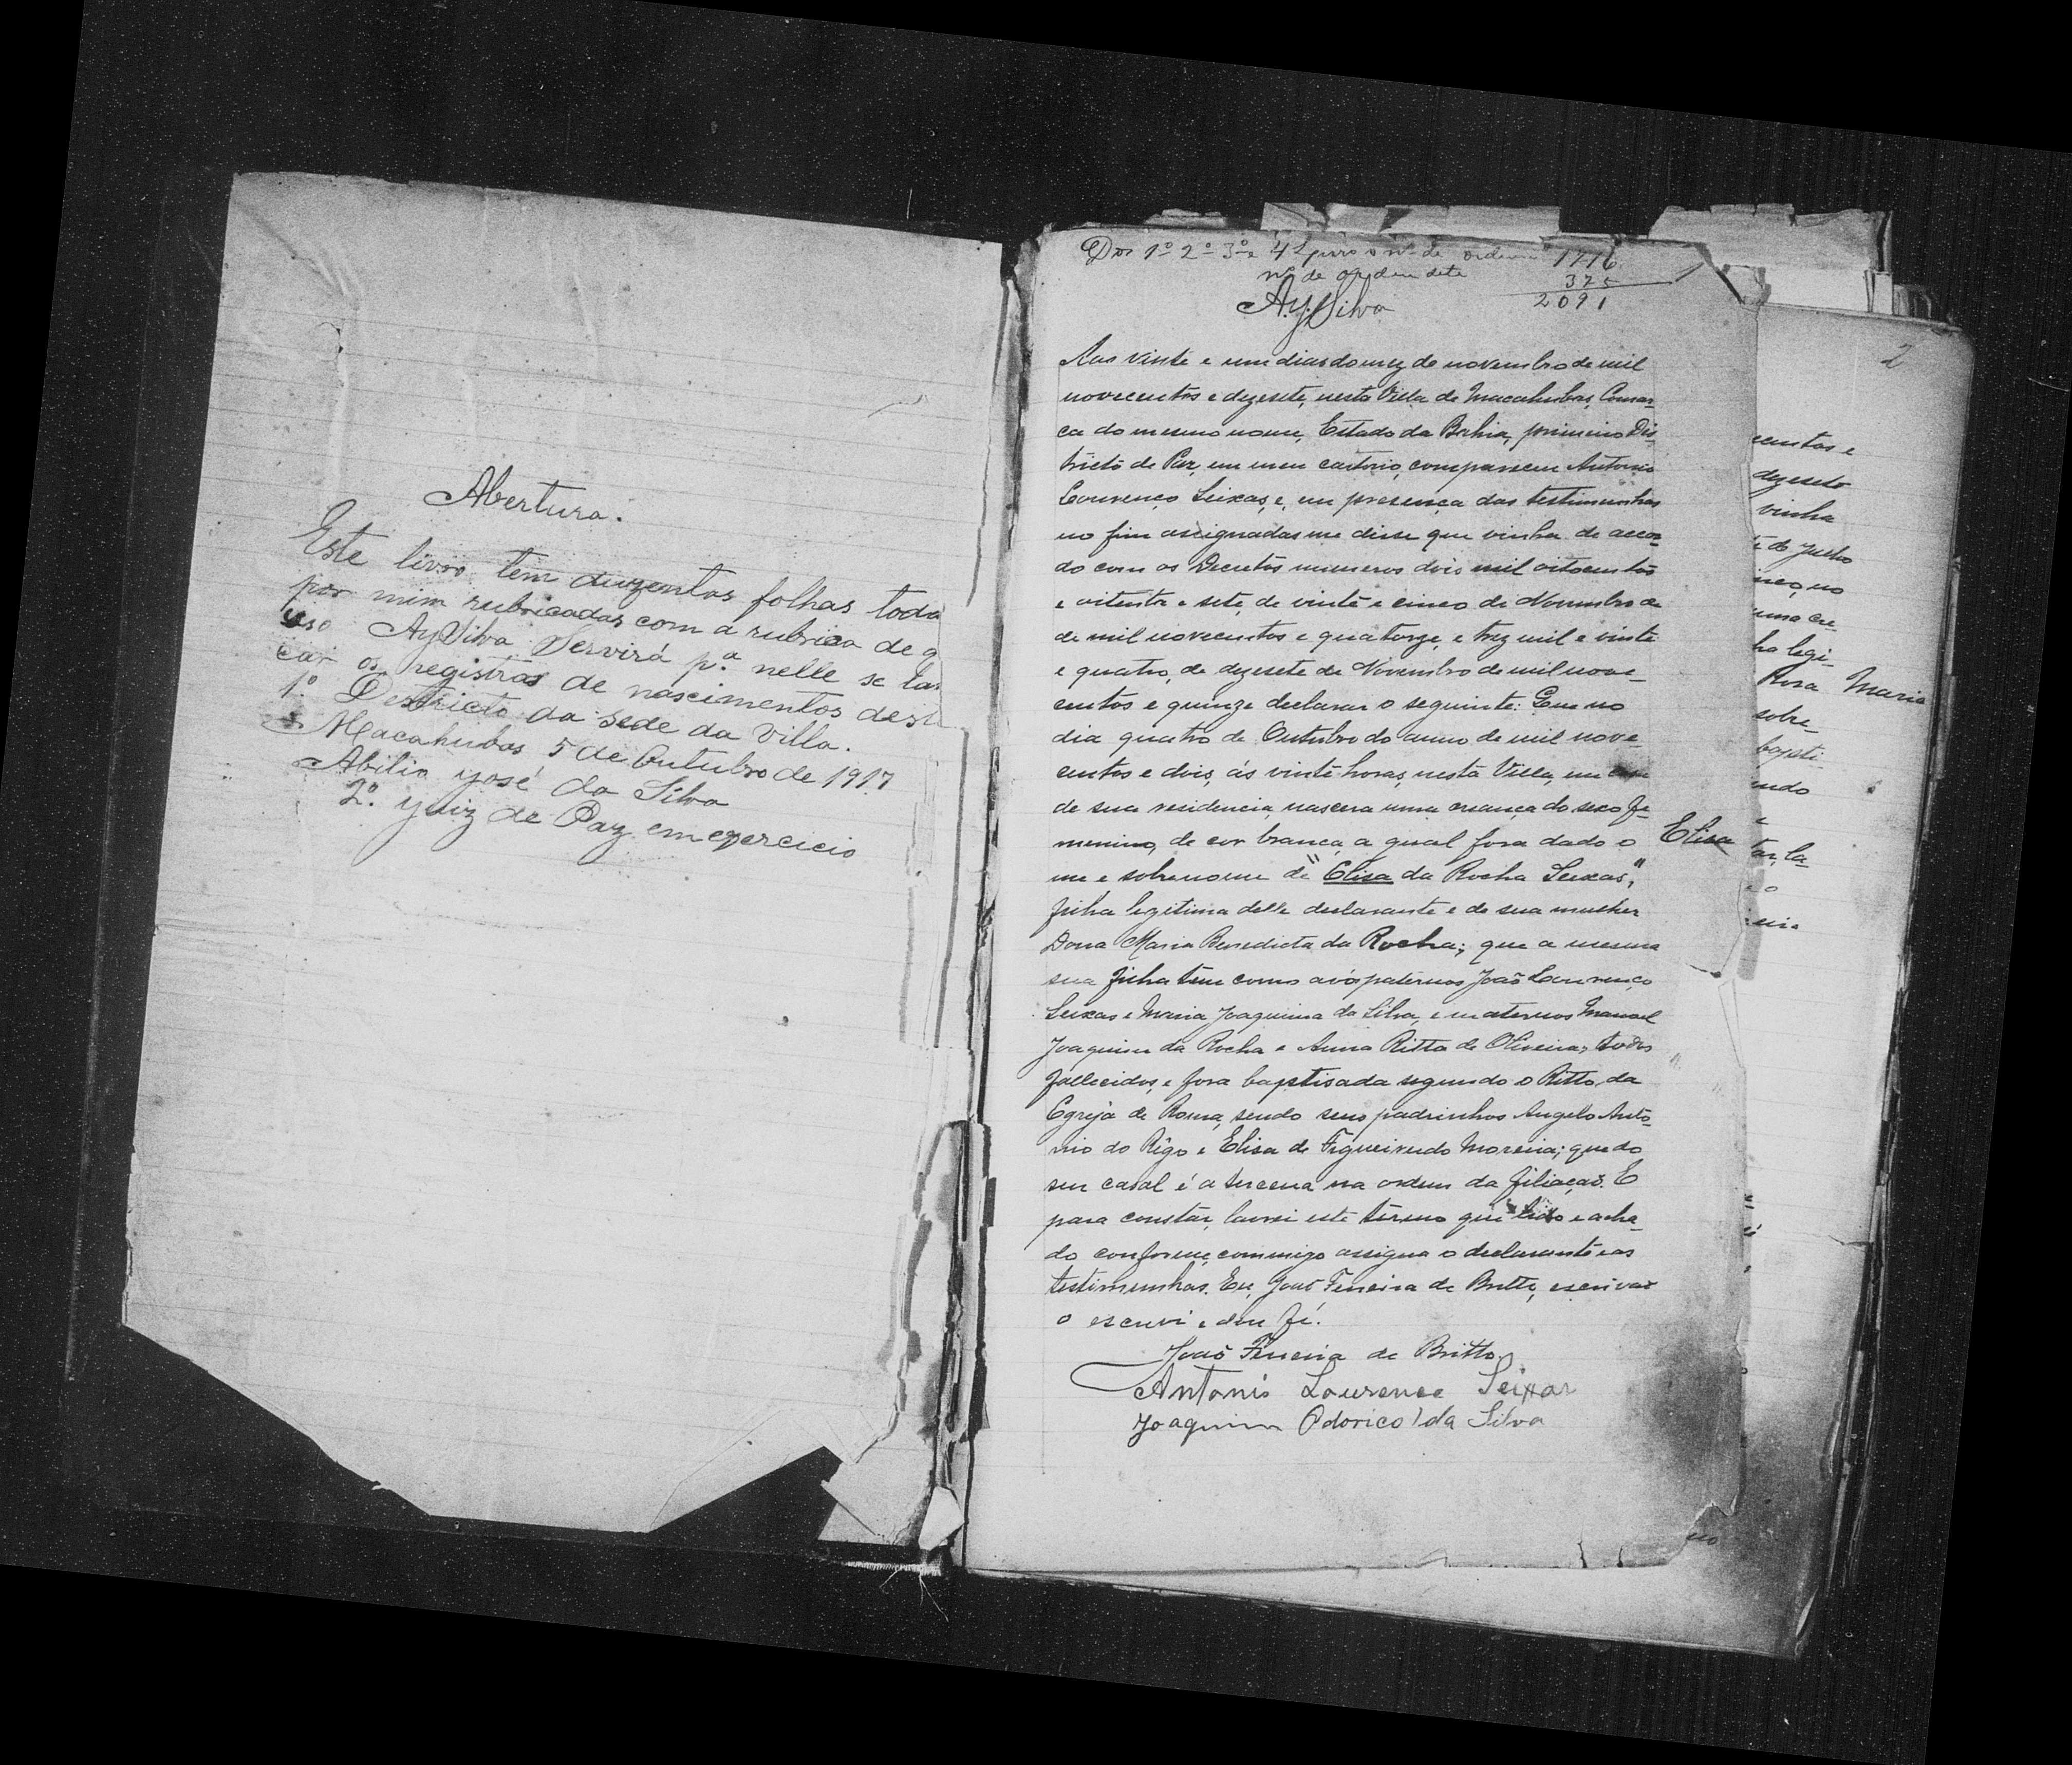 Abertura.
Este livro tem duzentas folhas toda
por mim rubricadas com a rubrica de q
uso AySilva Servirá pª nelle se lan
car os registros de nascimentos deste
1º Destricto da Sede da Villa.
Macahubas, 5 de Outubro de 1917
Abilio José da Silva
2º Juiz de Paz em exercicio
Dos 1º 2º 3º e 4º Livro o nº de ordem 1716
nº de ordem deste 375
2091
AySilva
Aos vinte e um dias do mez de novembro de mil
novecentos e dezesete, nesta Villa de Macahubas, Comar-
ca do mesmo nome, Estado da Bahia, primeiro Dis-
tricto de Paz, em meu cartorio, compareceu Antonio
Lourenço Seixas, e, em presença das testimunhas
no fim assignadas me disse que vinha de accor-
do com os Decretos numeros dois mil oitocentos
e oitenta e sete, de vinte e cinco de Novembro de
de mil novecentos e quatorze, e trez mil e vinte
e quatro, de dezesete de Novembro de mil nove-
centos e quinze declarar o seguinte: Que no
dia quatro de Outubro do anno de mil nove-
centos e dois, ás vinte horas, nesta Villa, em casa
de sua residencia, nascera uma creança do sexo fe-
menino, de cor branca, a qual fora dado o
me e sobrenome de "Elisa da Rocha Seixas",
Elisa
filha legitima delle declarante e de sua mulher
Dona Maria Benedicta da Rocha; que a mesma
sua filha tem como avós paternos João Lourenço
Seixas e Maria Joaquina da Silva, e maternos Manoel
Joaquim da Rocha e Anna Ritta de Oliveira, todos
fallecidos, e fora baptisada segundo o Ritto da
Egreja de Roma, sendo seus padrinhos Angelo Anto-
nio do Rêgo e Elisa de Figueiredo Moreira; que do
seu casal é a terceira na ordem da filiação. E
para constar, lavrei este termo que lido e acha-
do conforme, commigo assigna o declarante e as
testimunhas. Eu, João Ferreira de Britto, escrivão
o escrevi e dou fé.
João Ferreira de Britto.
Antonio Lourenço Seixas
Joaquim Odorico da Silva
2
centos e
dezesete
vinha
de Julho
uma cre-
ha legi-
Rosa Maria
sobre-
bapti-
endo